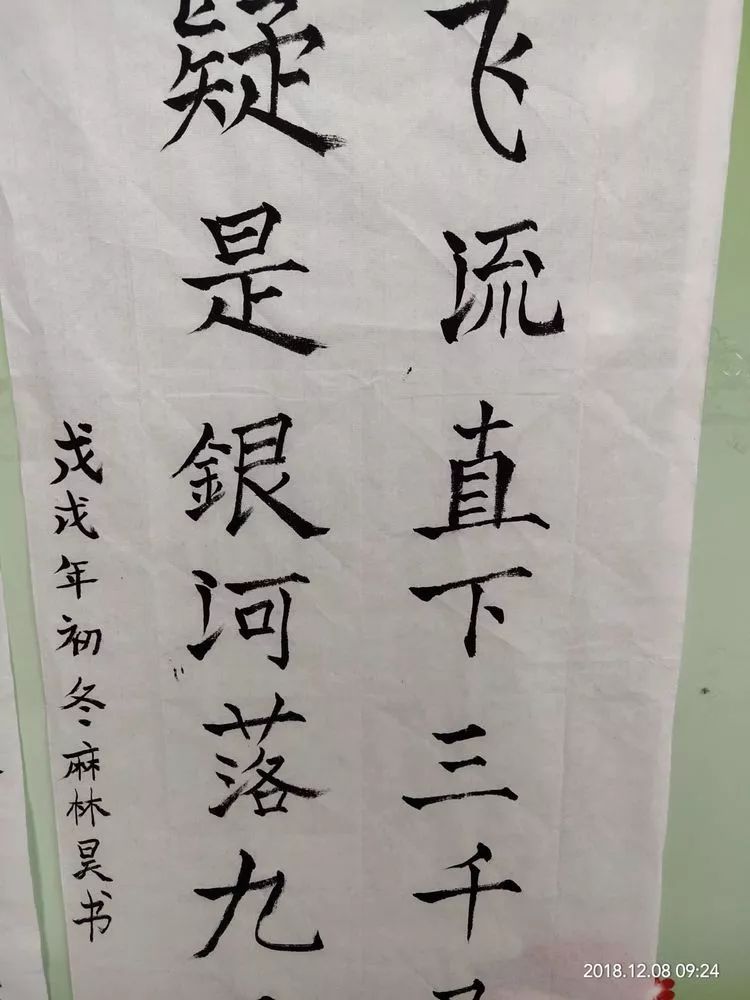 飞流直下三千
疑是銀河落九
戊戌年初冬麻林昊书
2018.12.08 09:24